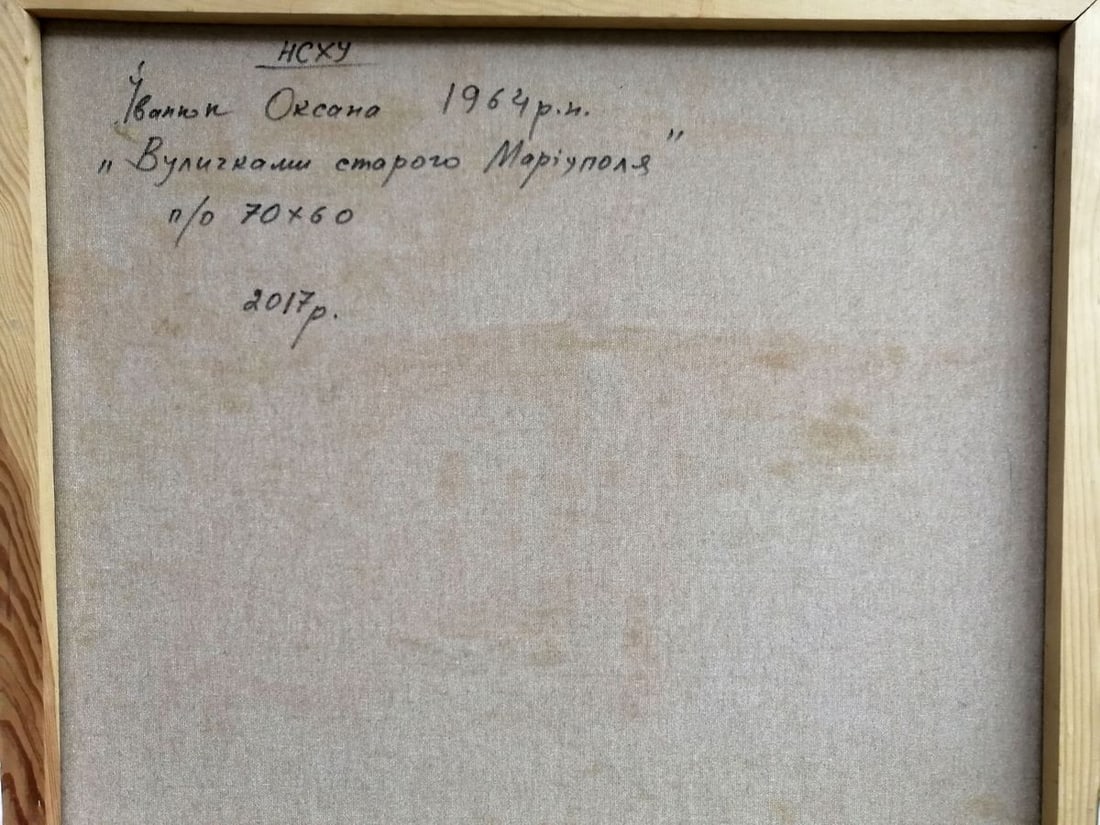 НСХУ
Іванюк Оксана 1964р.н.
„Вуличками старого Маріуполя"
п/о 70х60
2017р.